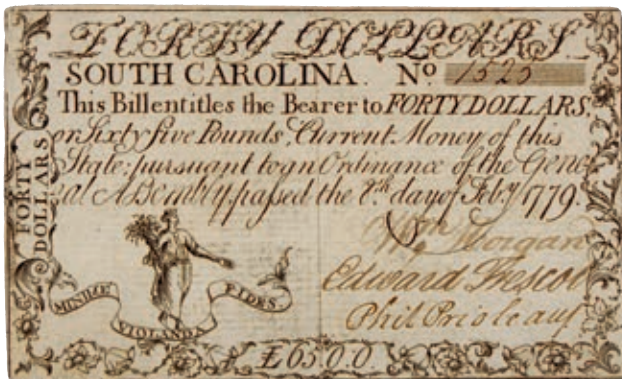 FORTY DOLLARS
SOUTH CAROLINA. No. 1525
This Bill entitles the Bearer to FORTY DOLLARS,
or Sixty five Pounds, Current Money of this
State: pursuant to an Ordinance of the Gene
ral Assembly, passed the 8th. day of Feby. 1779.
FORTY
DOLLARS
Wm. Morgan
Edward Trescot
Phil Prioleau
MINIME VIOLANDA FIDES
£65 0 0